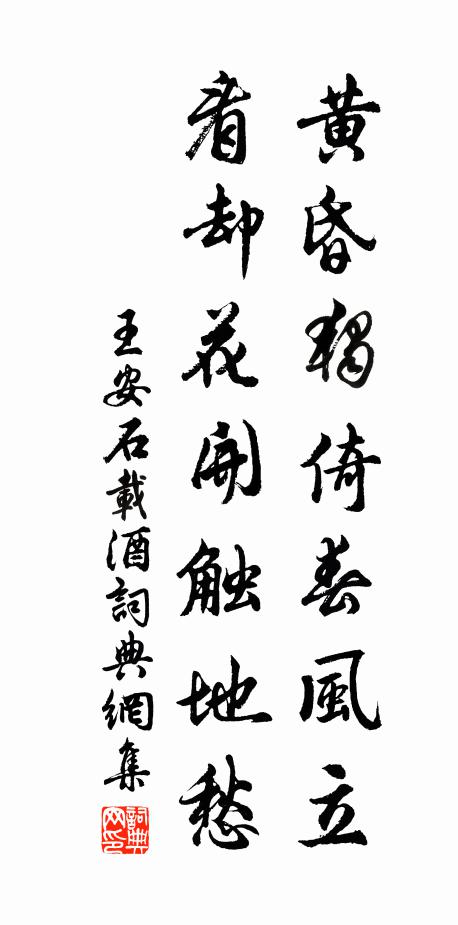 黄昏獨倚春風立
看却花開觸地愁
王安石載酒詞典網集
詞典网印